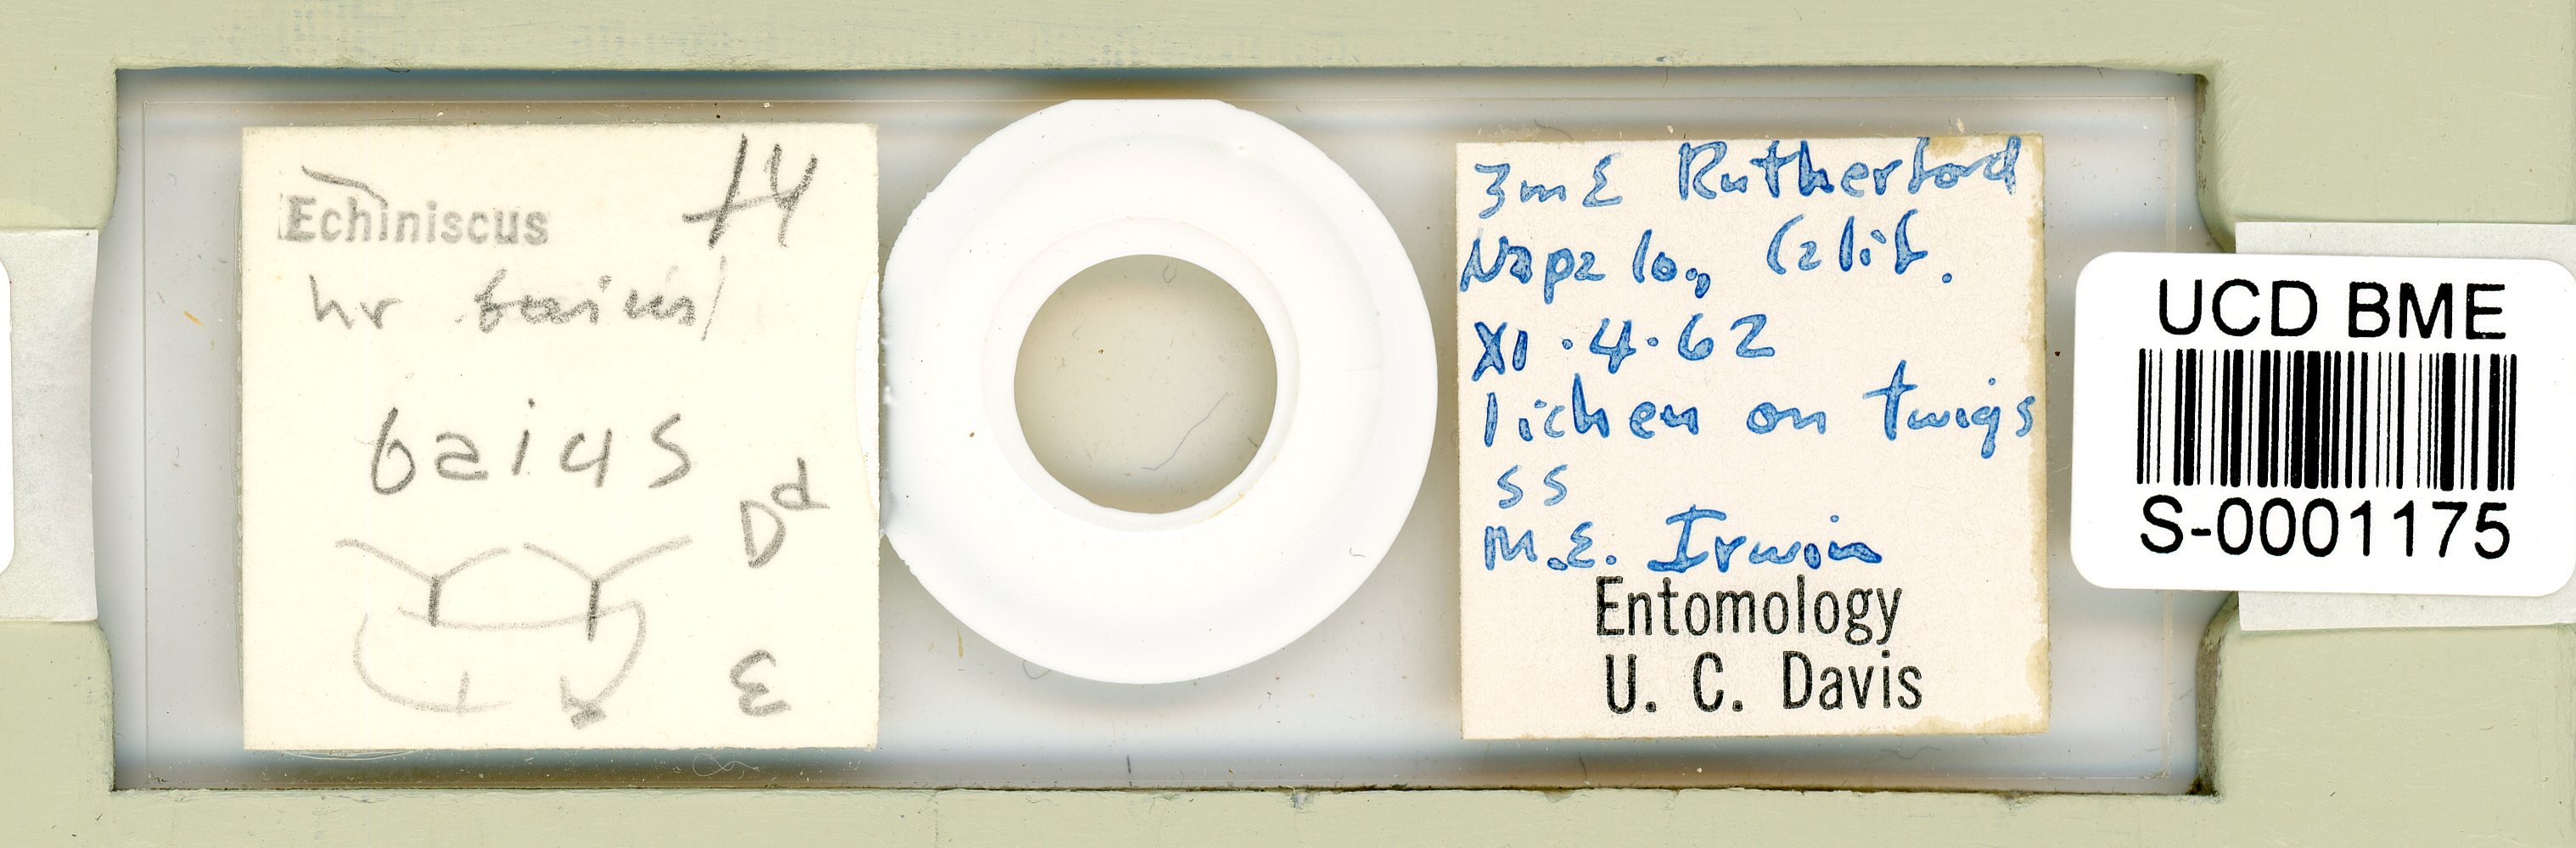 Echiniscus
nr baius
baius
Dd
E
3mE Rutherford
Napa Co., Calif.
XI.4.62
lichen on twigs
SS
M.E. Irwin
Entomology
U. C. Davis
UCD BME
S-0001175